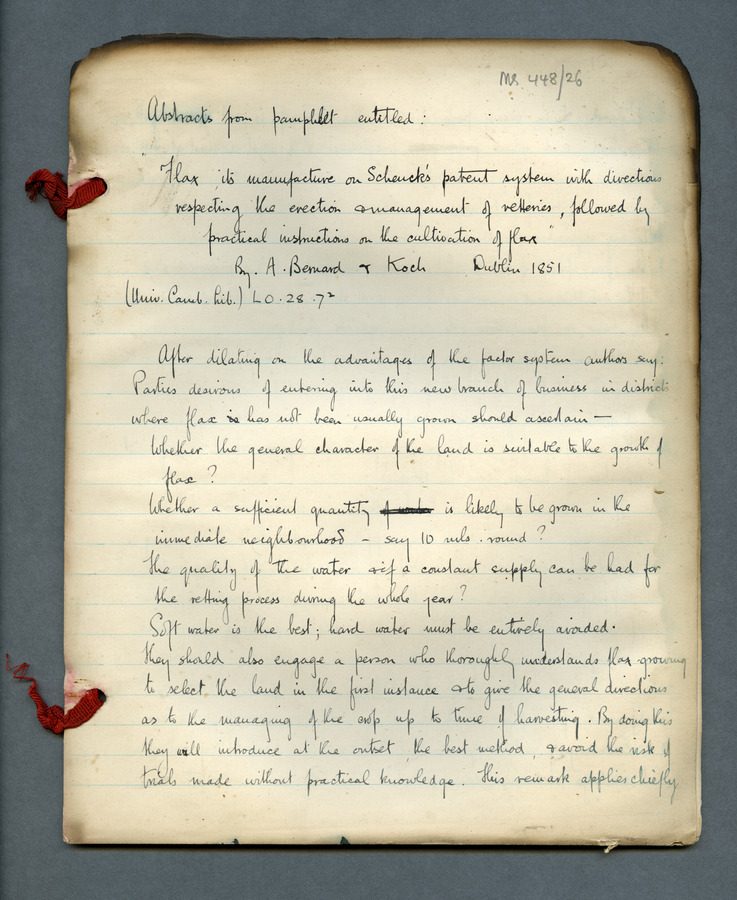 MS 448/26
Abstracts from pamphlet entitled:
"Flax, its manufacture on Schenck's patent system with directions
respecting the erection & management of retteries, followed by
practical instructions on the cultivation of flax"
By. A. Bernard & Koch Dublin 1851
(Univ. Camb. Lib.) LO.28.7²
After dilating on the advantages of the factor system authors say:
Parties desirous of entering into this new branch of business in districts
where flax is has not been usually grown should ascertain —
Whether the general character of the land is suitable to the growth of
flax?
Whether a sufficient quantity of water is likely to be grown in the
immediate neighbourhood - say 10 mls. round?
The quality of the water & if a constant supply can be had for
the retting process during the whole year?
Soft water is the best; hard water must be entirely avoided.
They should also engage a person who thoroughly understands flax growing
to select the land in the first instance & to give the general directions
as to the managing of the crop up to time of harvesting. By doing this
they will introduce at the outset the best method, & avoid the risk of
trials made without practical knowledge. This remark applies chiefly